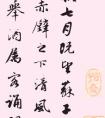 七月既望蘇子
赤壁之下清風
舉酒屬客誦